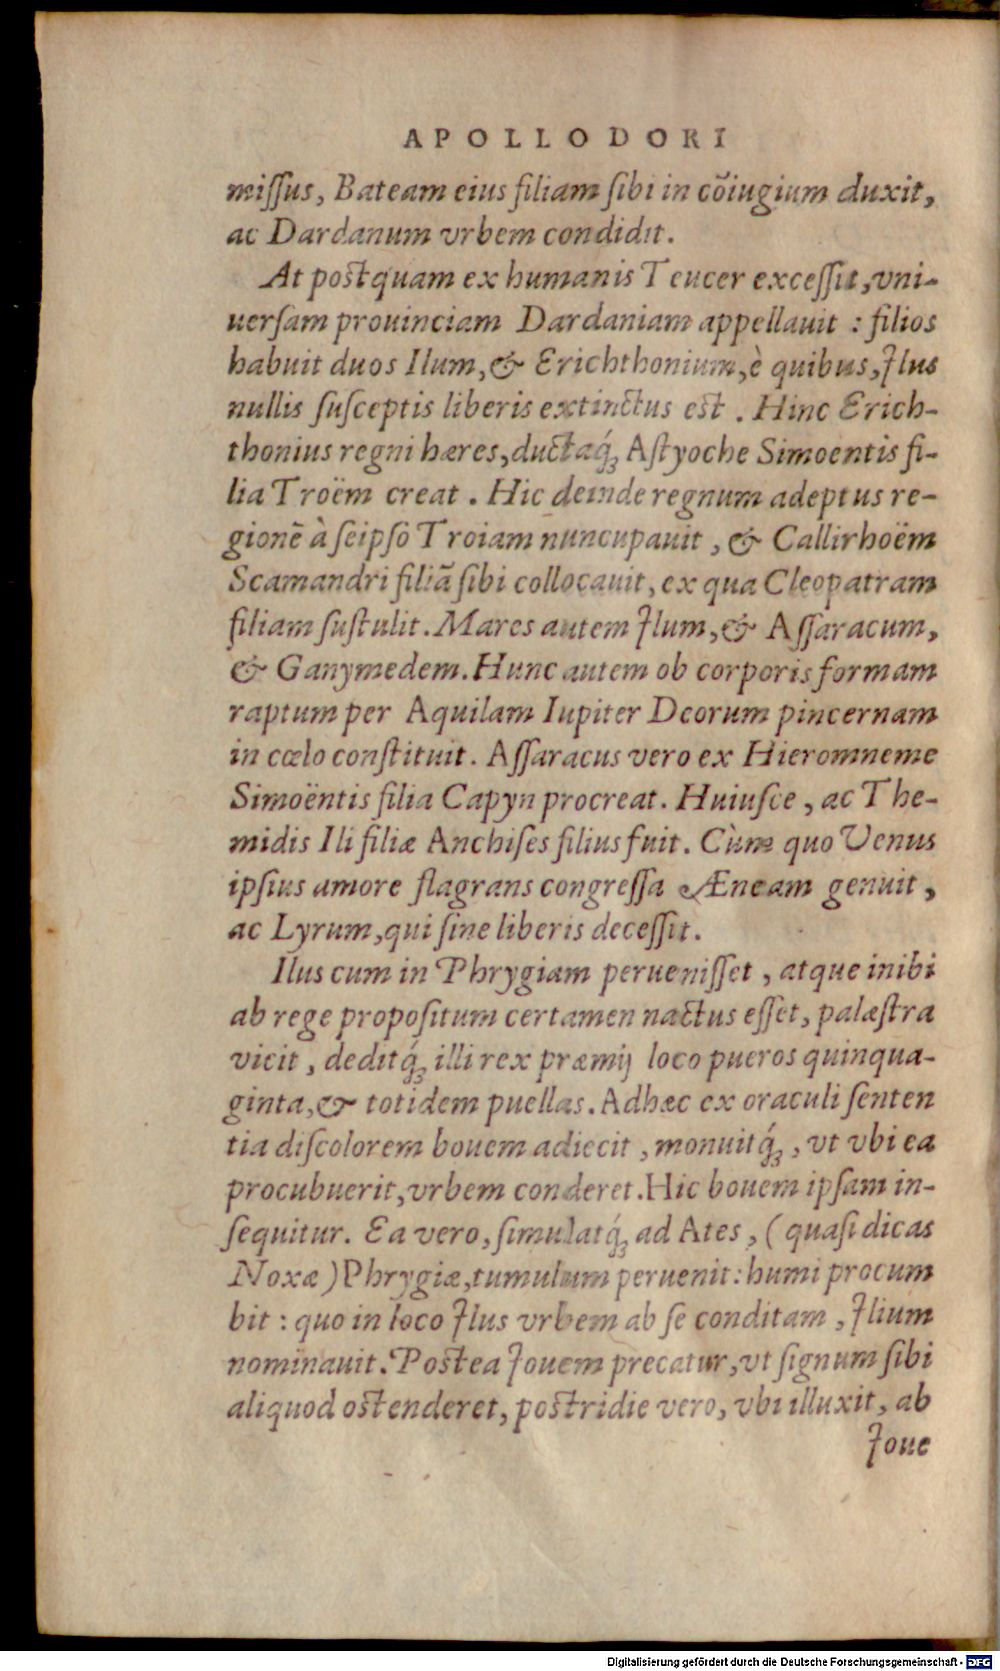 APOLLODORI
miſſus, Bateam eius filiam ſibi in cõiugium duxit,
ac Dardanum vrbem condidit.
At poſtquam ex humanis Teucer exceſſit, vni-
uerſam prouinciam Dardaniam appellauit : filios
habuit duos Ilum, & Erichthonium, è quibus, Ilus
nullis ſuſceptis liberis extinctus eſt . Hinc Erich-
thonius regni hæres, ductaq́; Aſtyoche Simoentis fi-
lia Troëm creat . Hic deinde regnum adeptus re-
gionẽ à ſeipſo Troiam nuncupauit , & Callirhoëm
Scamandri filiã ſibi collocauit, ex qua Cleopatram
filiam ſuſtulit. Mares autem Ilum, & Aſſaracum,
& Ganymedem. Hunc autem ob corporis formam
raptum per Aquilam Iupiter Deorum pincernam
in cœlo conſtituit. Aſſaracus vero ex Hieromneme
Simoëntis filia Capyn procreat. Huiuſce , ac The-
midis Ili filiæ Anchiſes filius fuit. Cùm quo Venus
ipſius amore flagrans congreſſa Æneam genuit ,
ac Lyrum, qui ſine liberis deceſſit.
Ilus cum in Phrygiam perueniſſet , atque inibi
ab rege propoſitum certamen nactus eſſet, palæſtra
vicit , deditq́; illi rex præmij loco pueros quinqua-
ginta, & totidem puellas. Adhæc ex oraculi ſenten
tia diſcolorem bouem adiecit , monuitq́; , vt vbi ea
procubuerit, vrbem conderet. Hic bouem ipſam in-
ſequitur. Ea vero, ſimulatq́; ad Ates , ( quaſi dicas
Noxæ ) Phrygiæ, tumulum peruenit : humi procum
bit : quo in loco Ilus vrbem ab ſe conditam , Ilium
nominauit. Poſtea Iouem precatur, vt ſignum ſibi
aliquod oſtenderet, poſtridie vero, vbi illuxit, ab
Ioue
Digitalisierung gefördert durch die Deutsche Forschungsgemeinschaft - DFG